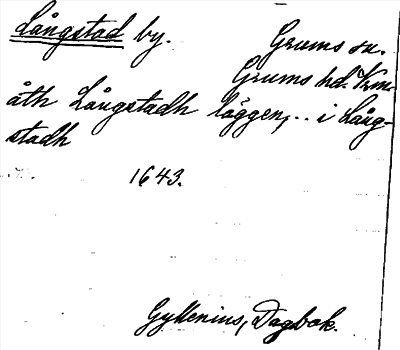 Långstad by. Grums sn.
Grums hd. Vrm.
åth Långstadh läggen,.. i Lång-
stadh
1643.
Gyllenius, Dagbok.